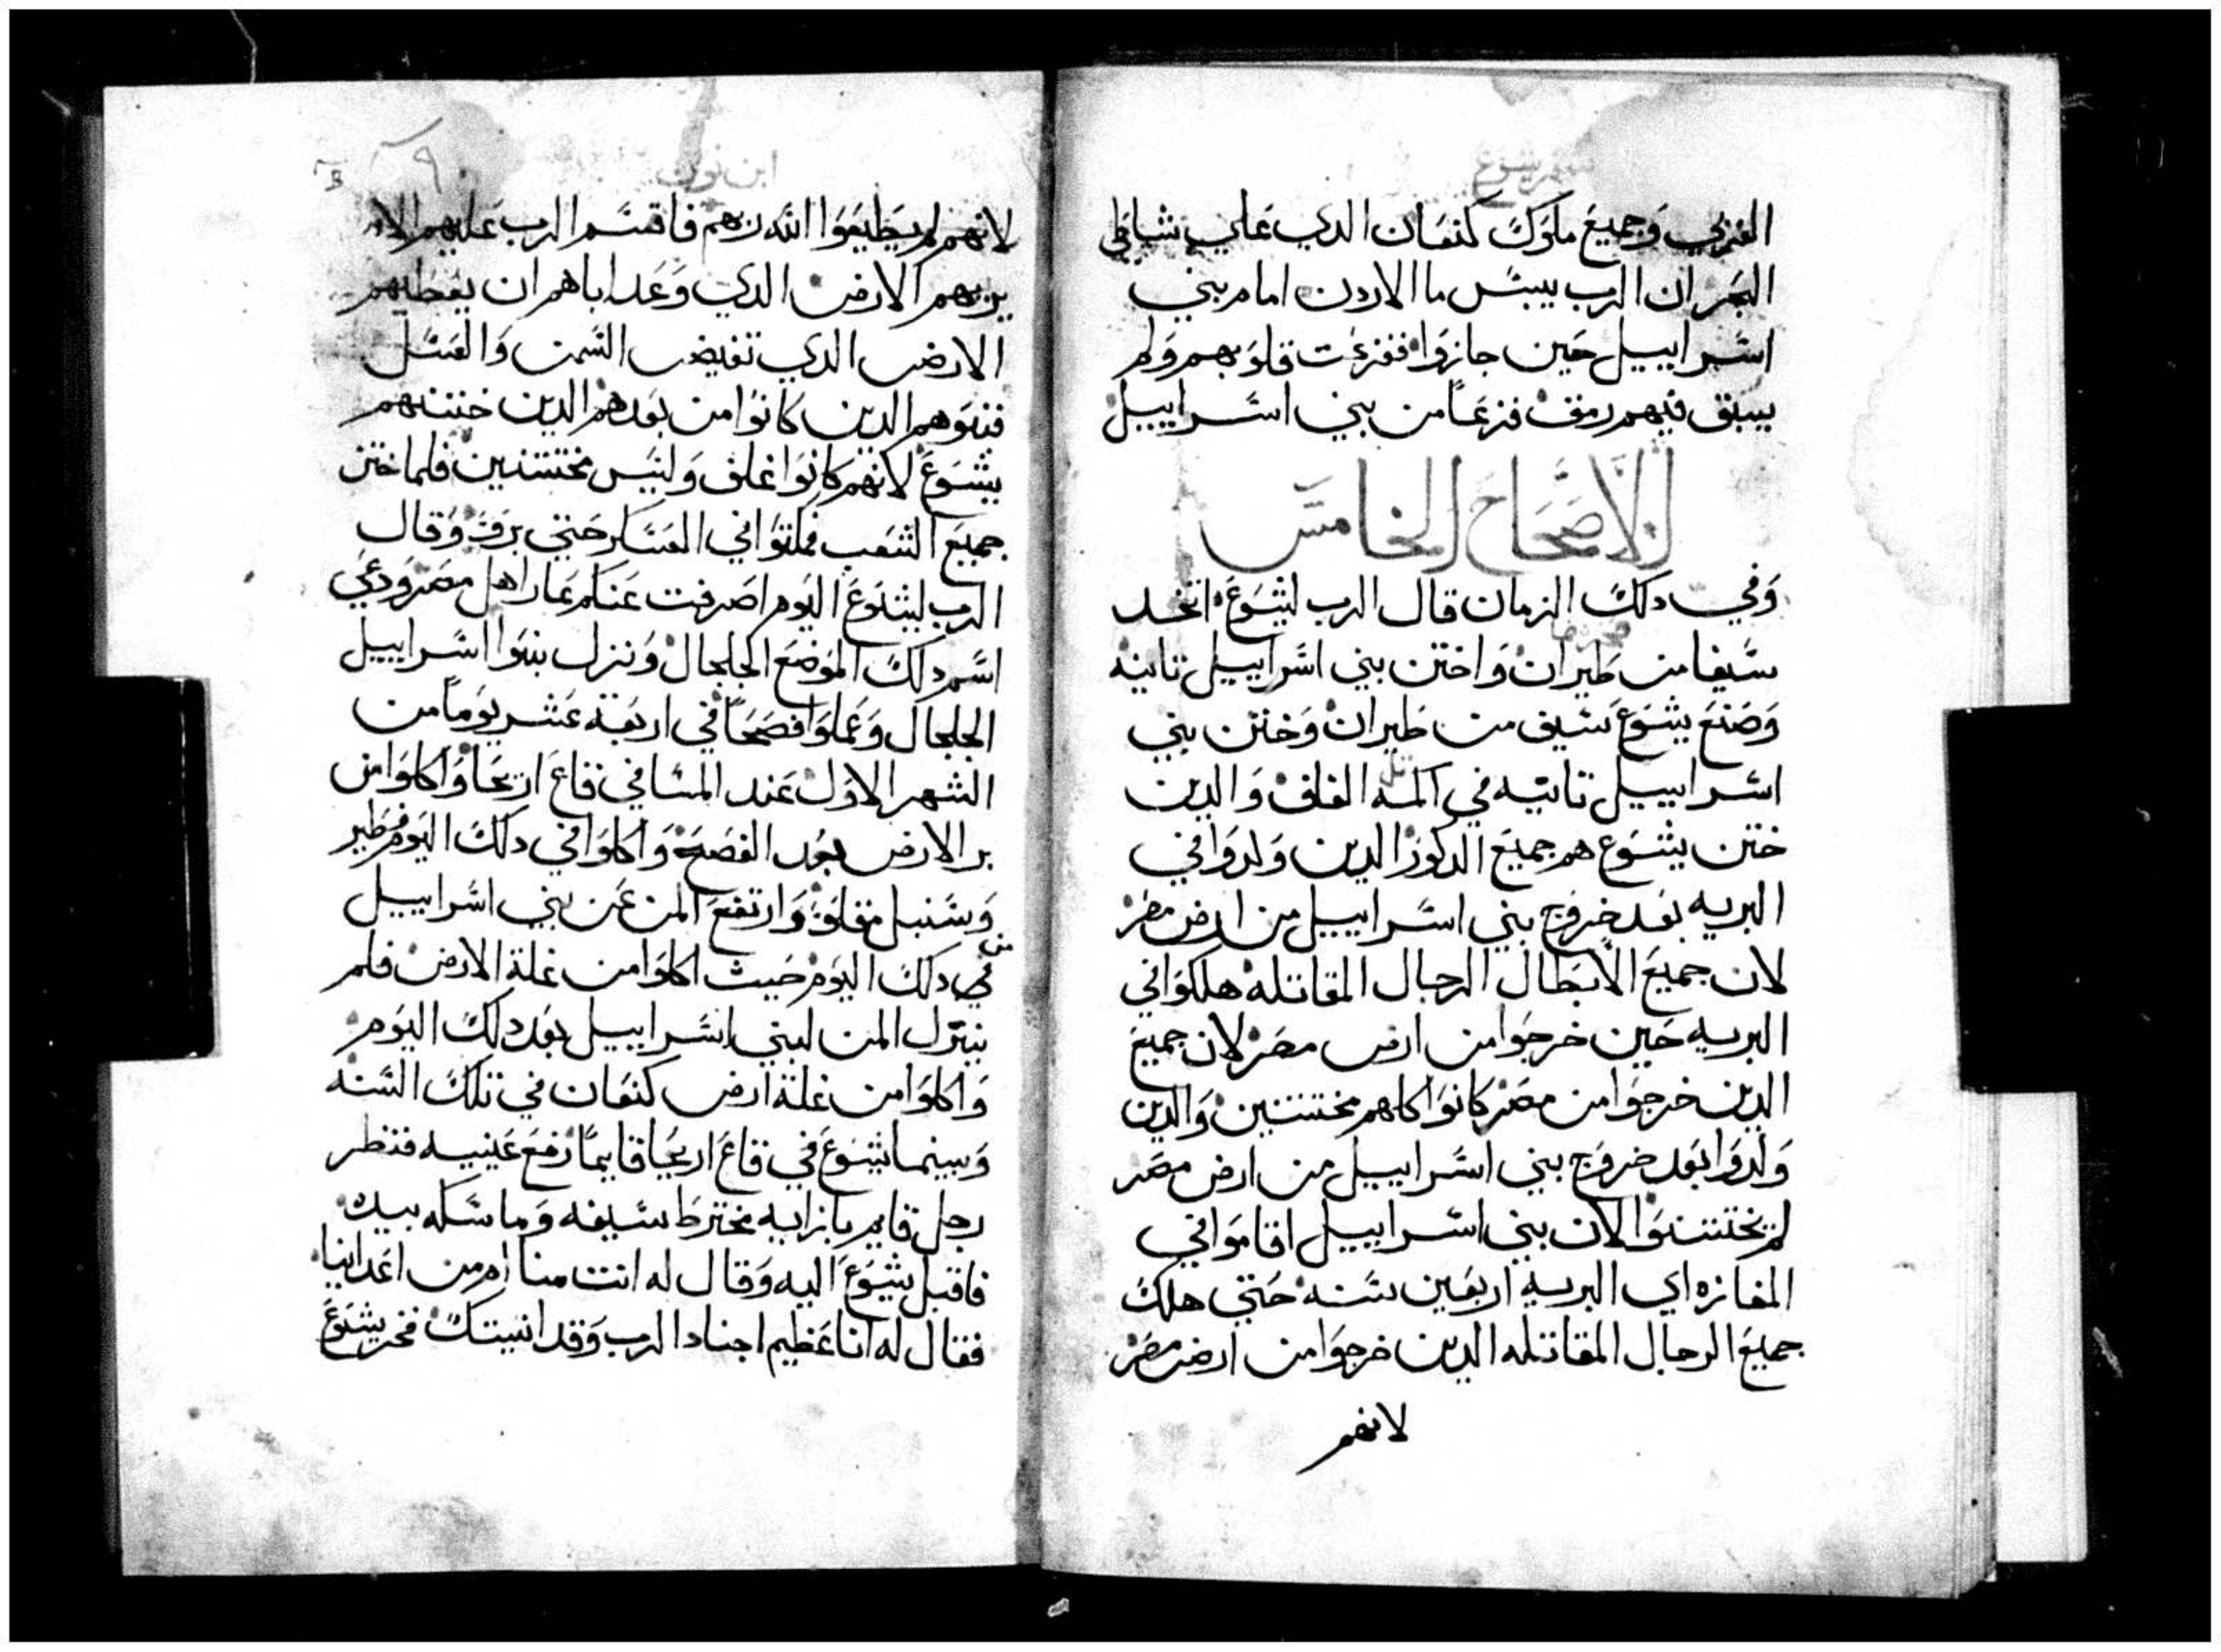 سفر يشوع
الغربي وجميع ملوك كنعان الدي علي شاطي
البحر ان الرب ييبس ما الاردن امام بني
اسراييل حين جازوا ففزعت قلوبهم ولم
يبق فيهم رمق فزعاً من بني اسراييل
الاصحاح الخامس
وفي دلك الزمان قال الرب ليشوع اتخد
سيفا من طيران واختن بني اسراييل تانيه
وصنع يشوع سيف من طيران وختن بني
اسراييل تانيه في اكمه الغلف والدين
ختن يشوع هم جميع الدكور الدين ولدوا في
البريه بعد خروج بني اسراييل من ارض مصر
لان جميع الابطال الرجال المقاتله هلكوا في
البريه حين خرجوا من ارض مصر لان جميع
الدين خرجوا من مصر كانوا كلهم مختتنين والدين
ولدوا بعد خروج بني اسراييل من ارض مصر
لم يختتنوا لان بني اسراييل اقاموا في
المفازه اي البريه اربعين سنه حتي هلك
جميع الرجال المقاتله الدين خرجوا من ارض مصر
لانهم
ابن نون
لانهم لم يطيعوا الله ربهم فاقسم الرب عليهم الا
يريهم الارض الدي وعد اباهم ان يعطيهم
الارض الدي تفيض السمن والعسل
فبنوهم الدين كانوا من بعدهم الدين ختنهم
يشوع لانهم كانوا غلف وليس مختتنين فلما ختن
جميع الشعب فمكتوا في العسكر حتي برو وقال
الرب ليشوع اليوم اصرفت عنكم عار اهل مصر ودعي
اسم دلك الموضع الجلجال ونزل بنوا اسراييل
الجلجال وعملوا فصحاً في اربعة عشر يوماً من
الشهر الاول عند المسا في قاع اريحا واكلوا من
بر الارض بعد الفصح واكلوا في دلك اليوم فطير
وسنبل مقلوة وارتفع المن عن بني اسراييل
في دلك اليوم حيث اكلوا من غلة الارض فلم
ينزل المن لبني اسراييل بعد دلك اليوم
واكلوا من غلة ارض كنعان في تلك السنه
وبينما يشوع في قاع اريحا قايماً رفع عينيه فنظر
رجل قايم بازايه مخترط سيفه وماسكه بيده
فاقبل يشوع اليه وقال له انت منا ام من اعداينا
فقال له انا عظيم اجناد الرب وقد اتيتك فخر يشوع